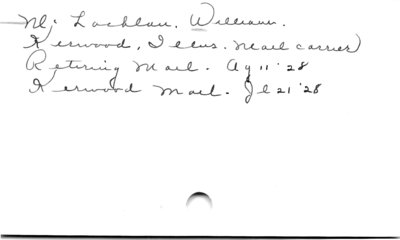 Mc Lachlan, William.
Kerwood, Illus. Mail carrier)
Retiring Mail. Ag 11 '28
Kerwood Mail. Jl 21 '28